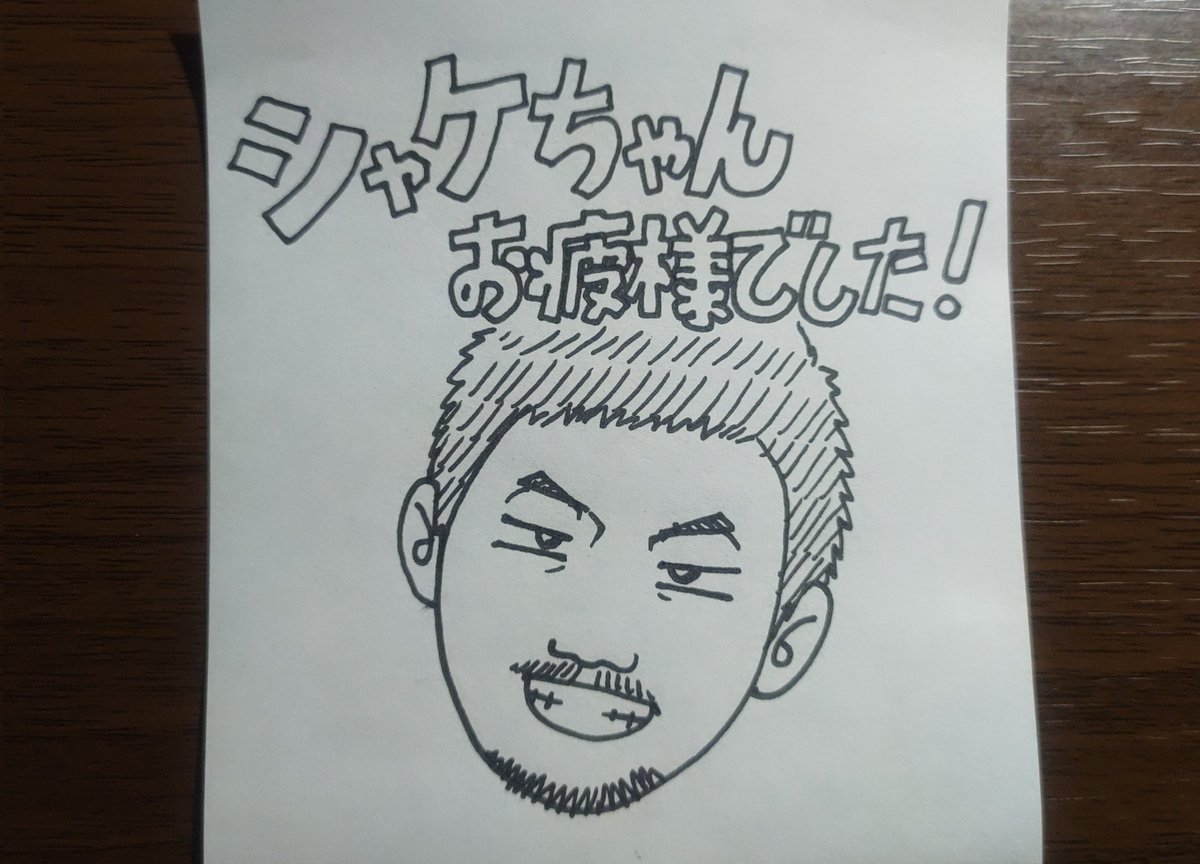 シャケちゃん
お疲様でした!